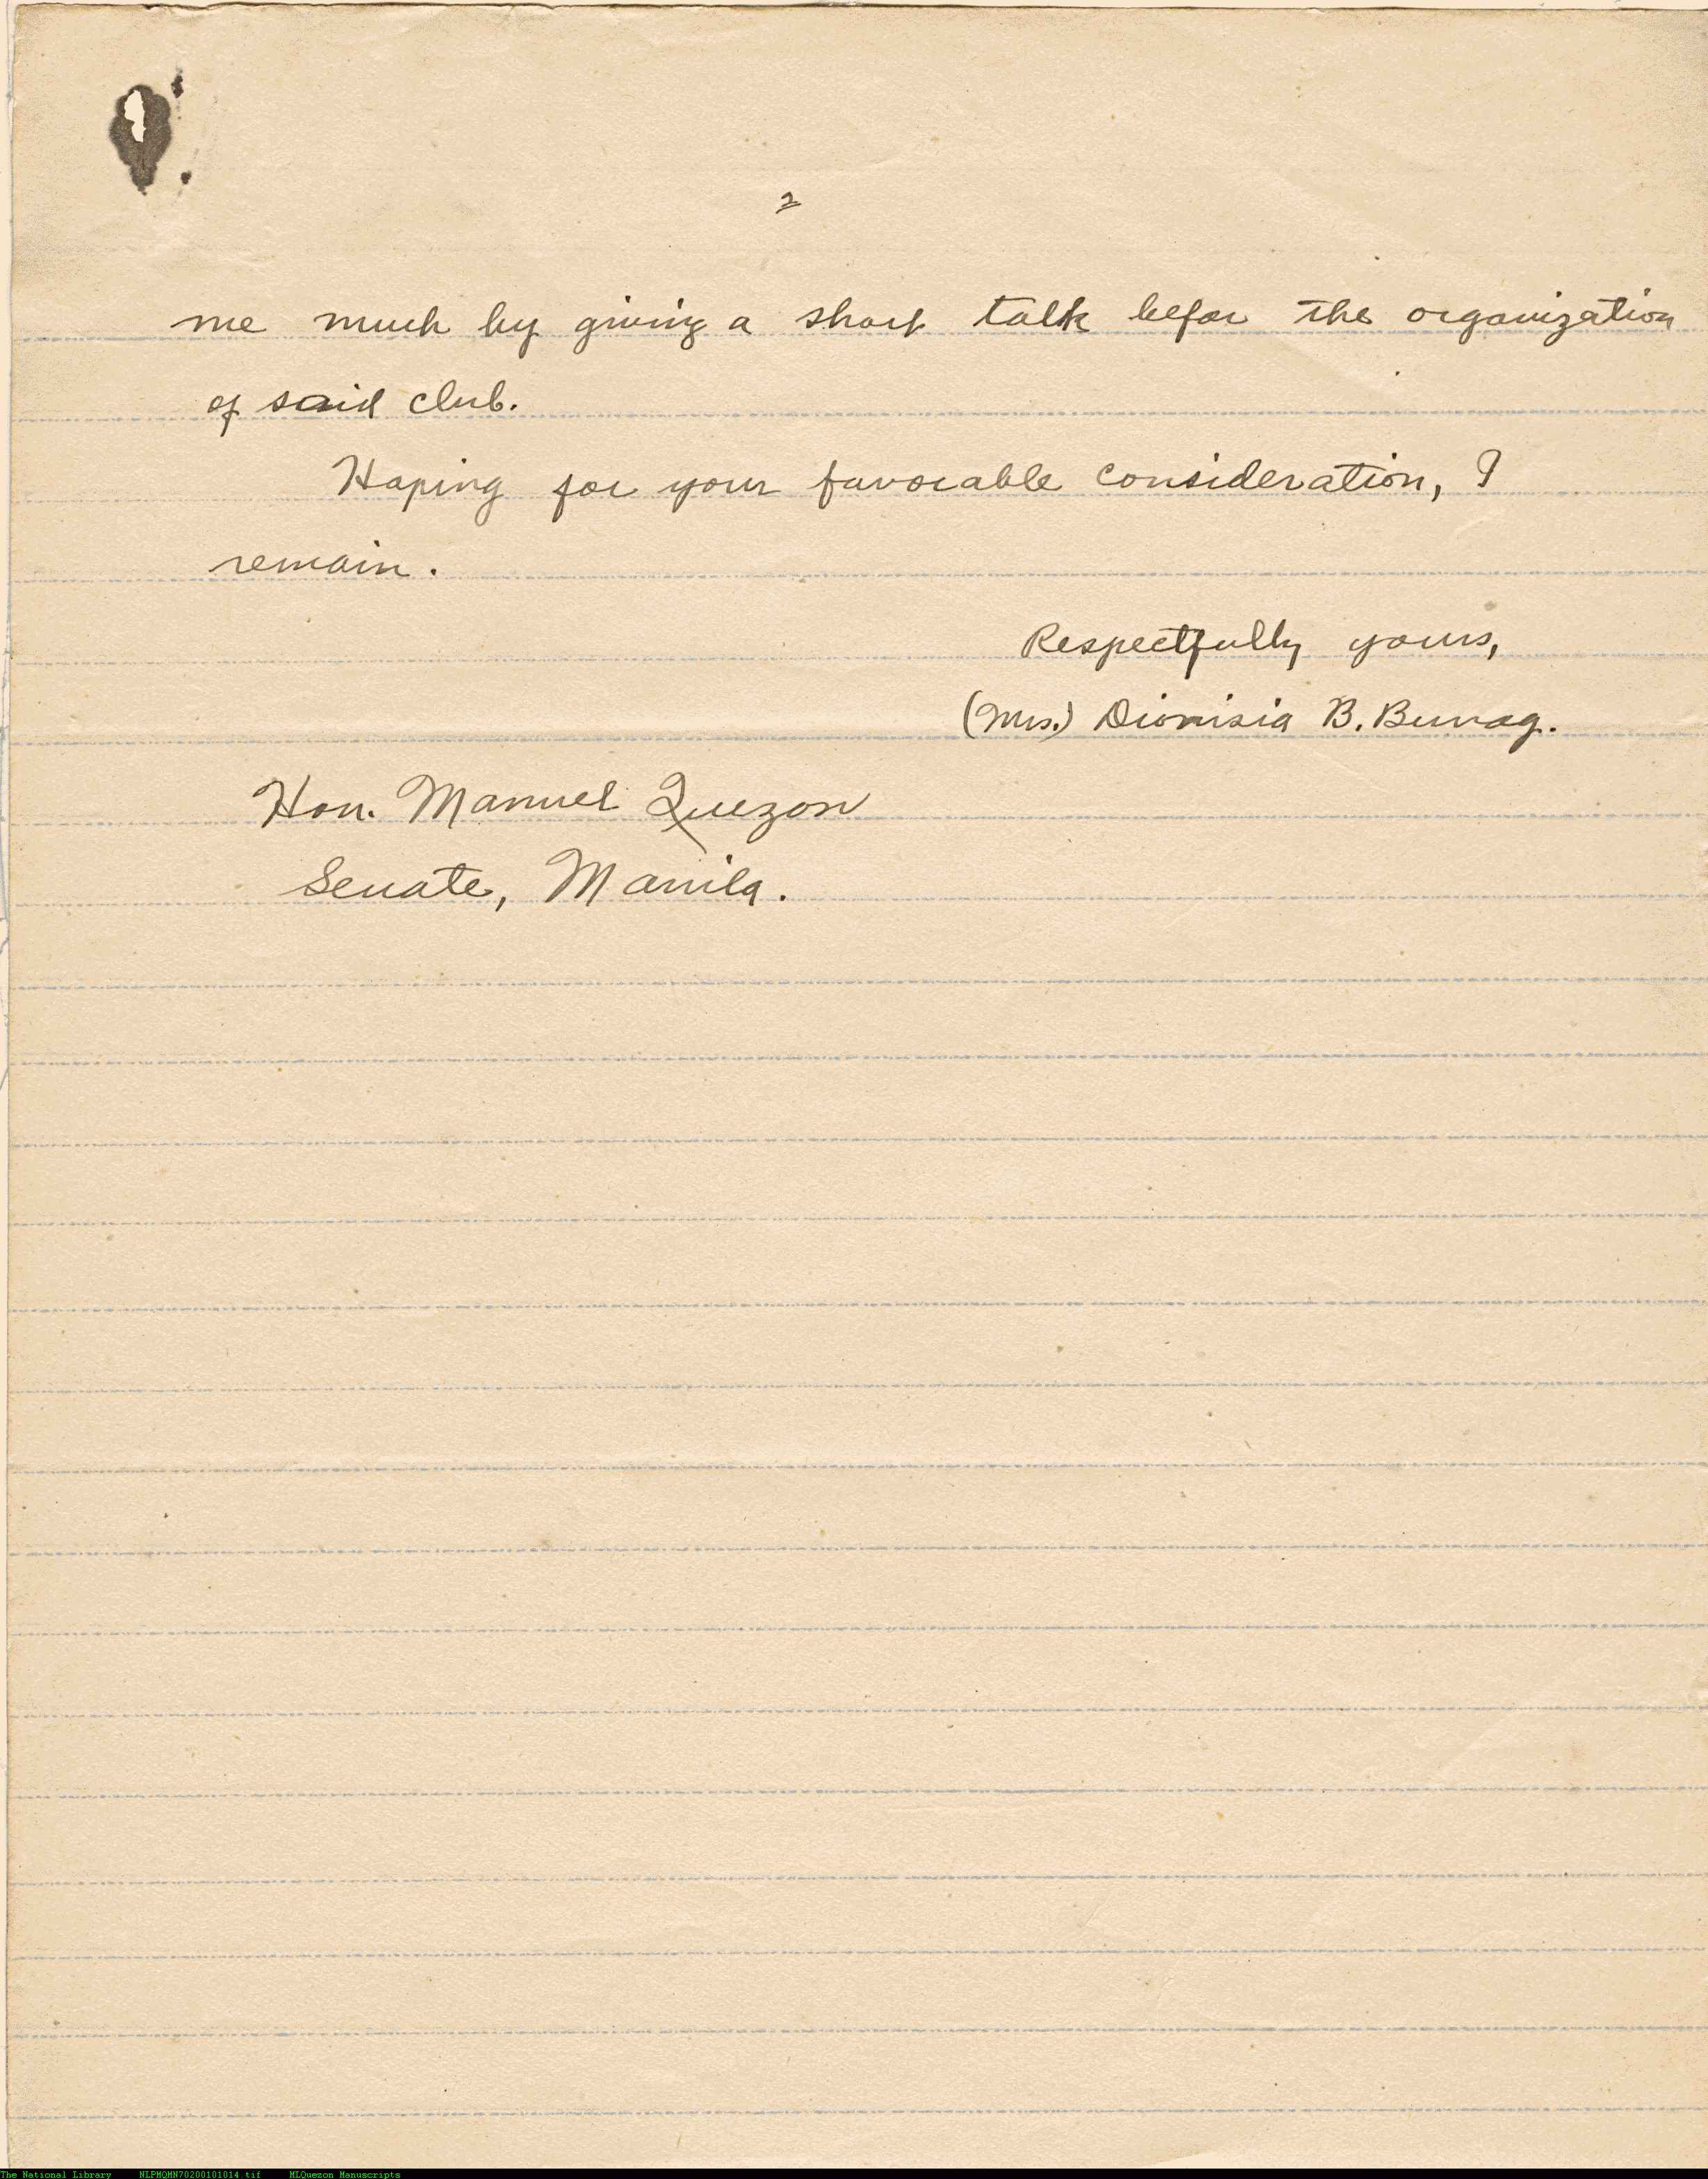 2
me much by giving a short talk befor the organization
of said club.
Hoping for your favorable consideration, I
remain.
Respectfully yours,
(Mrs.) Dionisia B. Bunag.
Hon. Manuel Quezon
Senate, Manila.
The National Library NLPMQMN70200101014.tif MLQuezon Manuscripts